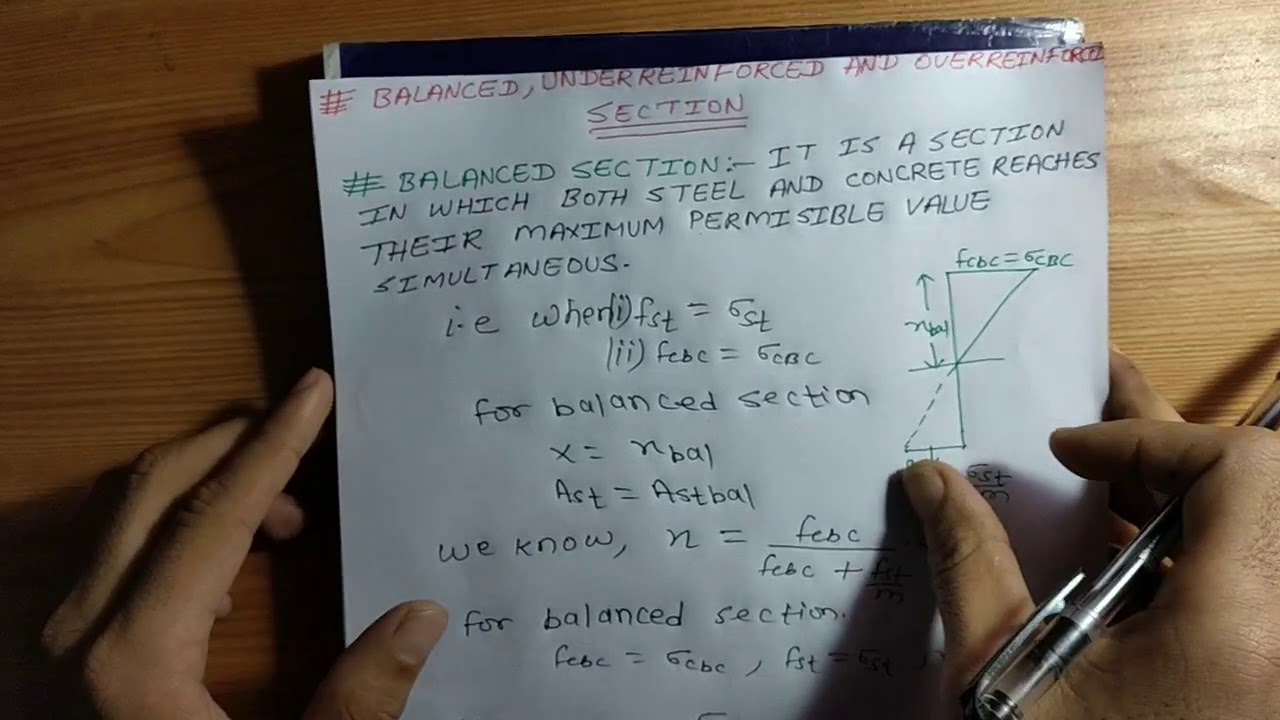 # BALANCED, UNDERREINFORCED AND OVERREINFORCED
SECTION
# BALANCED SECTION:- IT IS A SECTION
IN WHICH BOTH STEEL AND CONCRETE REACHES
THEIR MAXIMUM PERMISIBLE VALUE
SIMULTANEOUS.
i.e when(i) fst = σst
(ii) fcbc = σCBC
for balanced section
x = nbal
Ast = Astbal
we know, n = fcbc / (fcbc + fst/m)
for balanced section.
fcbc = σcbc, fst = σst,
fcbc = σCBC
nbal
σst/m